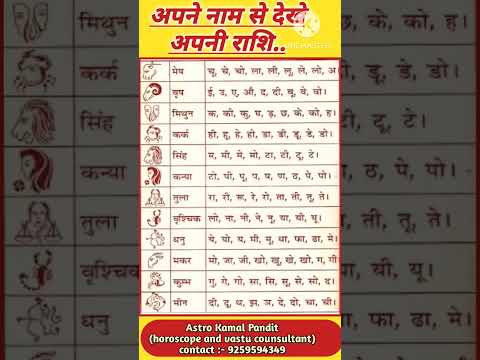 अपने नाम से देखे
अपनी राशि..
मिथुन
छ, के, को, ह।
कर्क
डू, डे, डो।
सिंह
टू, टे।
कन्या
ठ, पे, पो।
तुला
ती, तू, ते।
वृश्चिक
यी, यू।
धनु
फा, ढा, मे।
मेष चू, चे, चो, ला, ली, लू, ले, लो, अ।
वृष ई, उ, ए, औ, द, दी, वू, वे, वो।
मिथुन क, को, कु, घ, ड़, छ, के, को, ह।
कर्क ही, हू, हे, हो, डा, डी, डू, डे, डो।
सिंह म, मी, मे, मो, टा, टी, टू, टे।
कन्या टो, पी, पू, प, ष, ण, ठ, पे, पो।
तुला रा, री, रू, रे, रो, ता, ती, तू, ते।
वृश्चिक लो, ना, नी, ने, नू, या, यी, यू।
धनु ये, यो, य, मी, मू, धा, फा, ढा, मे।
मकर मो, जा, जी, खो, खू, खे, खो, ग, गी।
कुम्भ गु, गे, गो, सा, सि, सू, से, सो, द।
मीन दी, दू, थ, झ, ञ, दे, दो, चा, ची।
Astro Kamal Pandit
(horoscope and vastu counsultant)
contact :- 9259594349